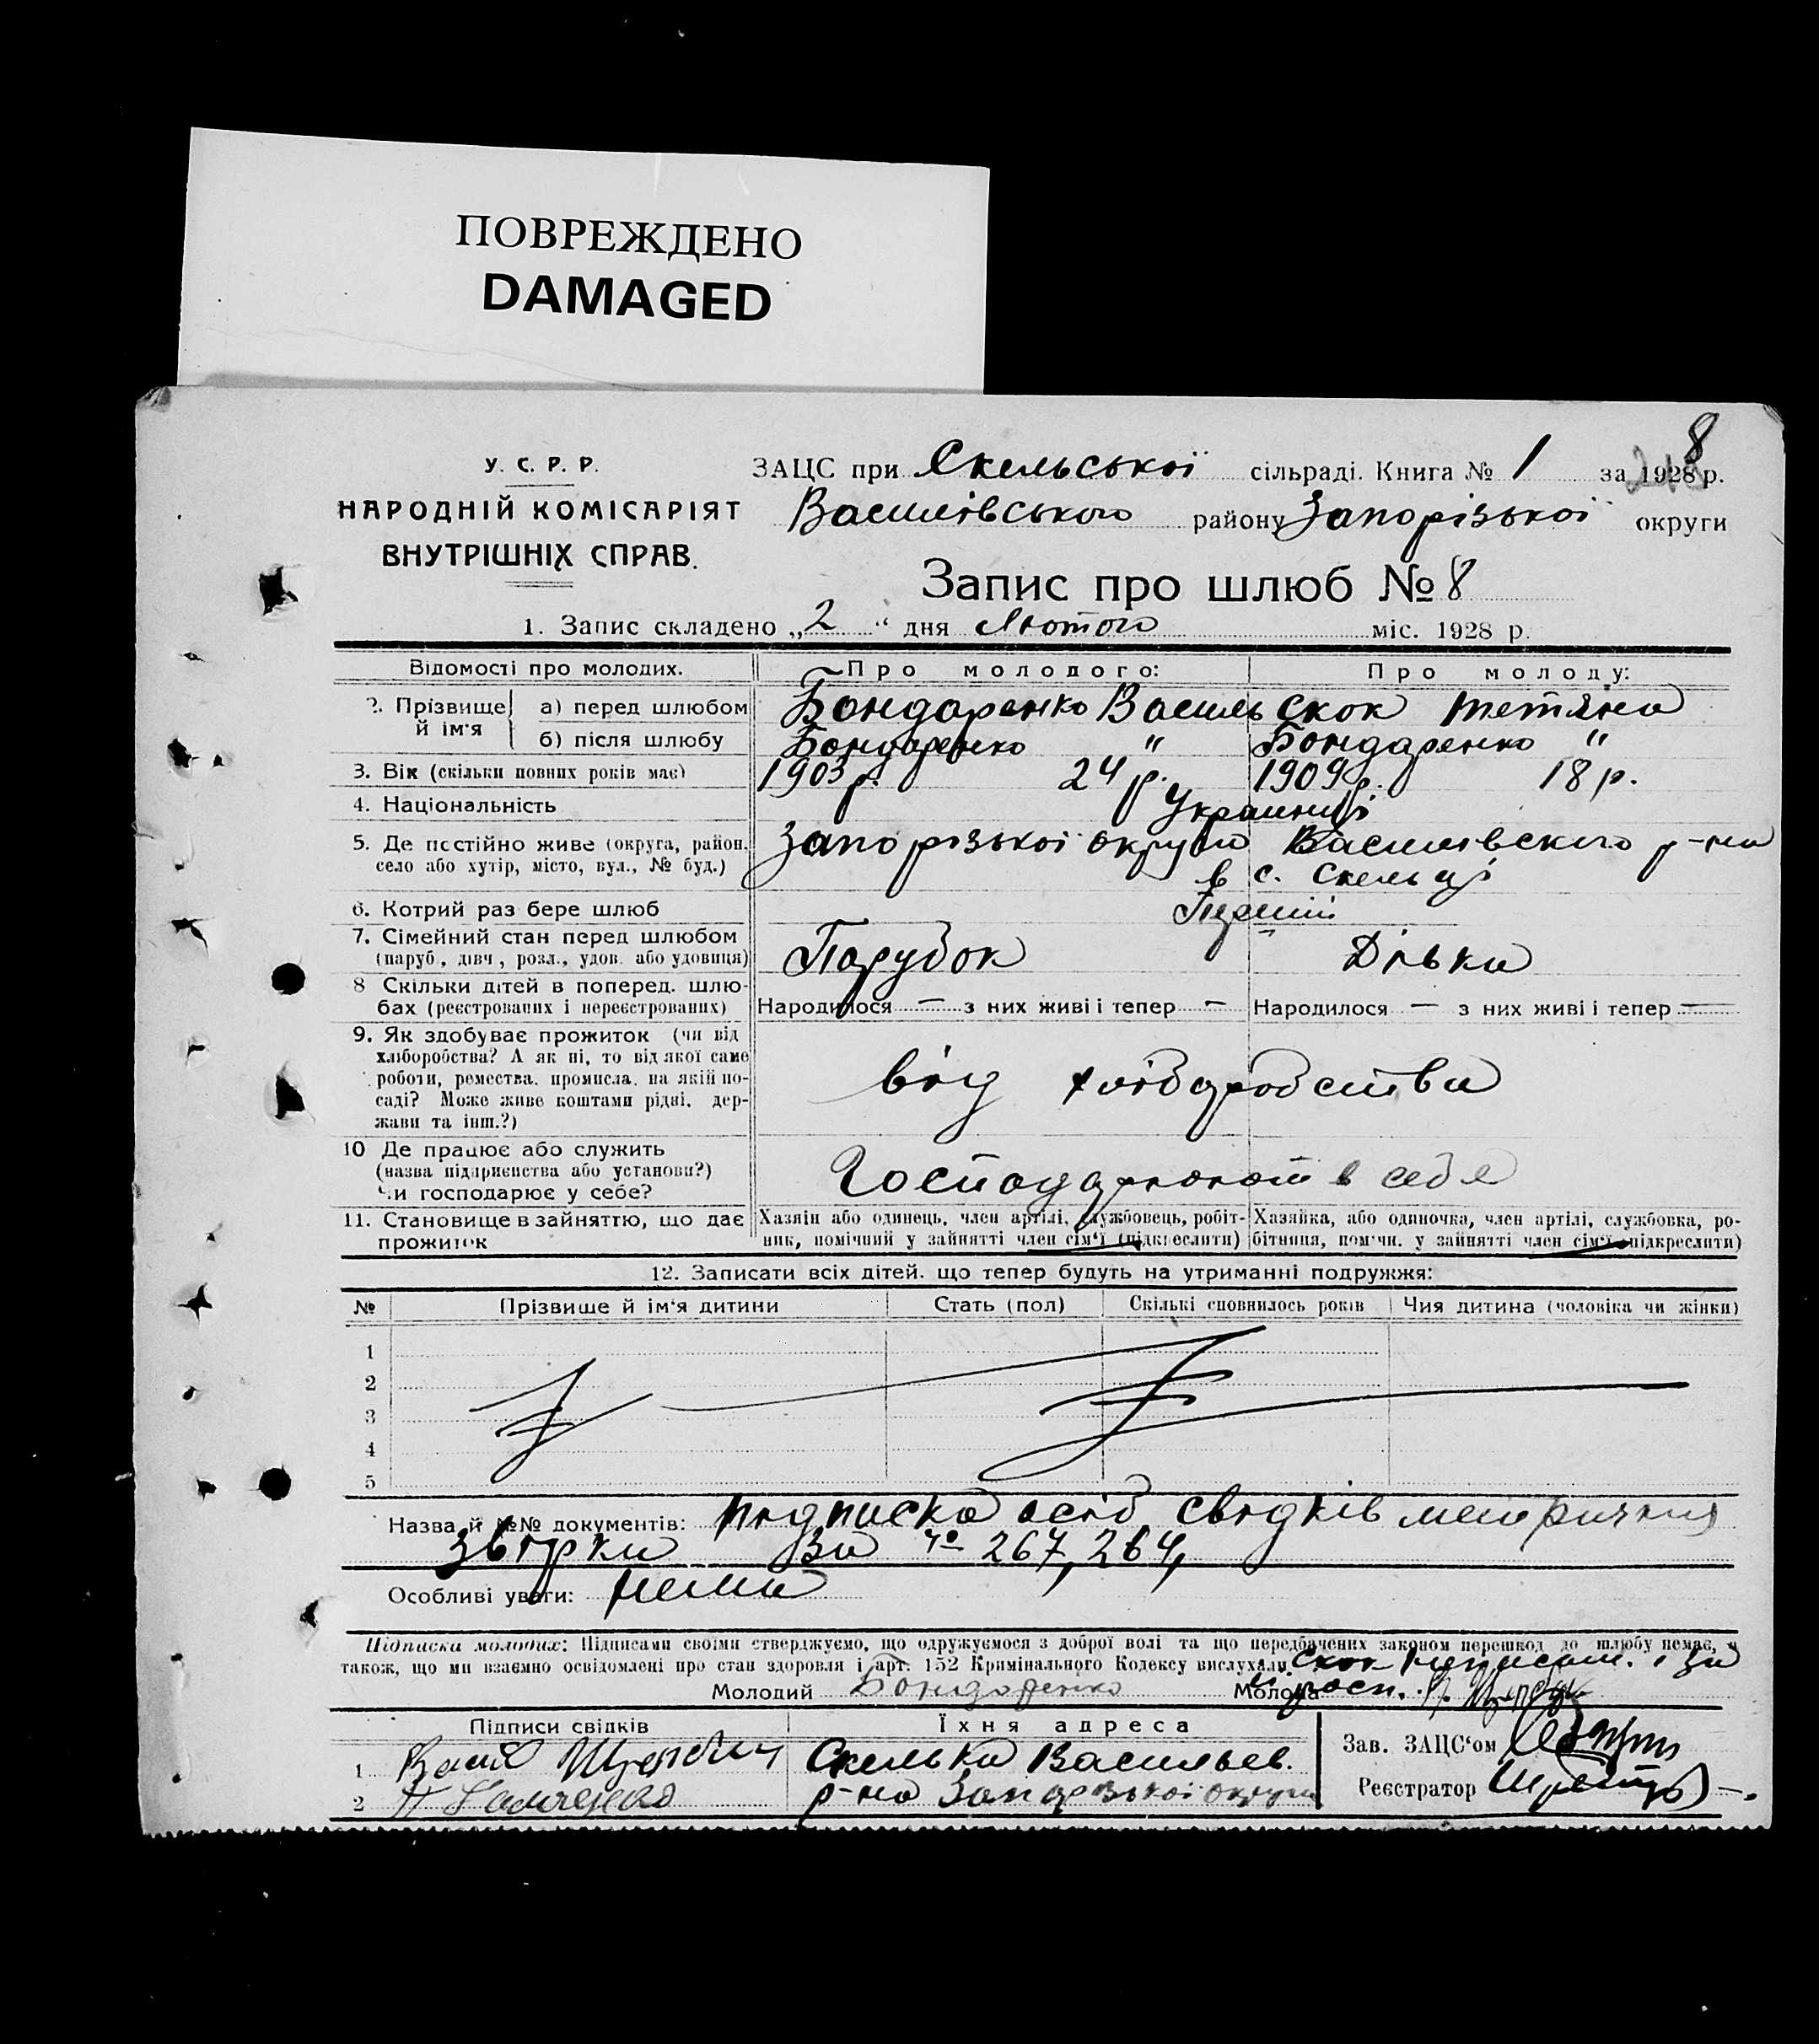 ПОВРЕЖДЕНО
DAMAGED
8
У. С. Р. Р.
НАРОДНІЙ КОМІСАРІЯТ
ВНУТРІШНІХ СПРАВ.
ЗАЦС при Скельської сільраді. Книга № 1 за 1928 р.
Василівського району Запорізької округи
Запис про шлюб № 8
1. Запис складено „2“ дня Лютого міс. 1928 р.
Відомості про молодих. Про молодого: Про молоду:
2. Прізвище й ім'я а) перед шлюбом Бондаренко Василь Скок Тетяна
б) після шлюбу Бондаренко " Бондаренко "
3. Вік (скільки повних років має) 1903 р. 24 р. 1909 р. 18 р.
4. Національність Украинці
5. Де постійно живе (округа, район, Запорізької округи Василівского р-на
село або хутір, місто, вул., № буд.) в с. Скельці
6. Котрий раз бере шлюб Перший
7. Сімейний стан перед шлюбом
(паруб., дівч., розл., удов. або удовиця) Парубок Дівка
8 Скільки дітей в поперед. шлю-
бах (реєстрованих і нереєстрованих) Народилося — з них живі і тепер — Народилося — з них живі і тепер —
9. Як здобуває прожиток (чи від
хліборобства? А як ні, то від якої саме
роботи, ремества, промисла, на якій по-
саді? Може живе коштами рідні, дер-
жави та інш.?)
від хліборобства
10 Де працює або служить
(назва підприємства або установи?)
Чи господарює у себе?
Господарюют в себе
11. Становище в зайняттю, що дає
прожиток
Хазяїн або одинець, член артілі, службовець, робіт-
ник, помічний у зайнятті член сім'ї (підкреслити)
Хазяйка, або одиночка, член артілі, службовка, ро-
бітниця, помічн. у зайнятті член сім'ї (підкреслити)
12. Записати всіх дітей, що тепер будуть на утриманні подружжя:
№ Прізвище й ім'я дитини Стать (пол) Скількі сповнилось років Чия дитина (чоловіка чи жінки)
1
2
3
4
5
Назва й №№ документів: підписка осіб свідків метричния
звірки За № 267, 264,
Особливі уваги: нема
Підписка молодих: Підписами своїми стверджуємо, що одружуємося з доброї волі та що передбачених законом перешкод до шлюбу немає, а
також, що ми взаємно освідомлені про стан здоровля і арт. 152 Кримінального Кодексу вислухали. Скок неписьм. і за
Молодий Бондаренко Молода
Підписи свідків Їхня адреса
1 Скелька Васильев.
2 р-на Запорізької округи
Зав. ЗАЦС'ом
Реєстратор